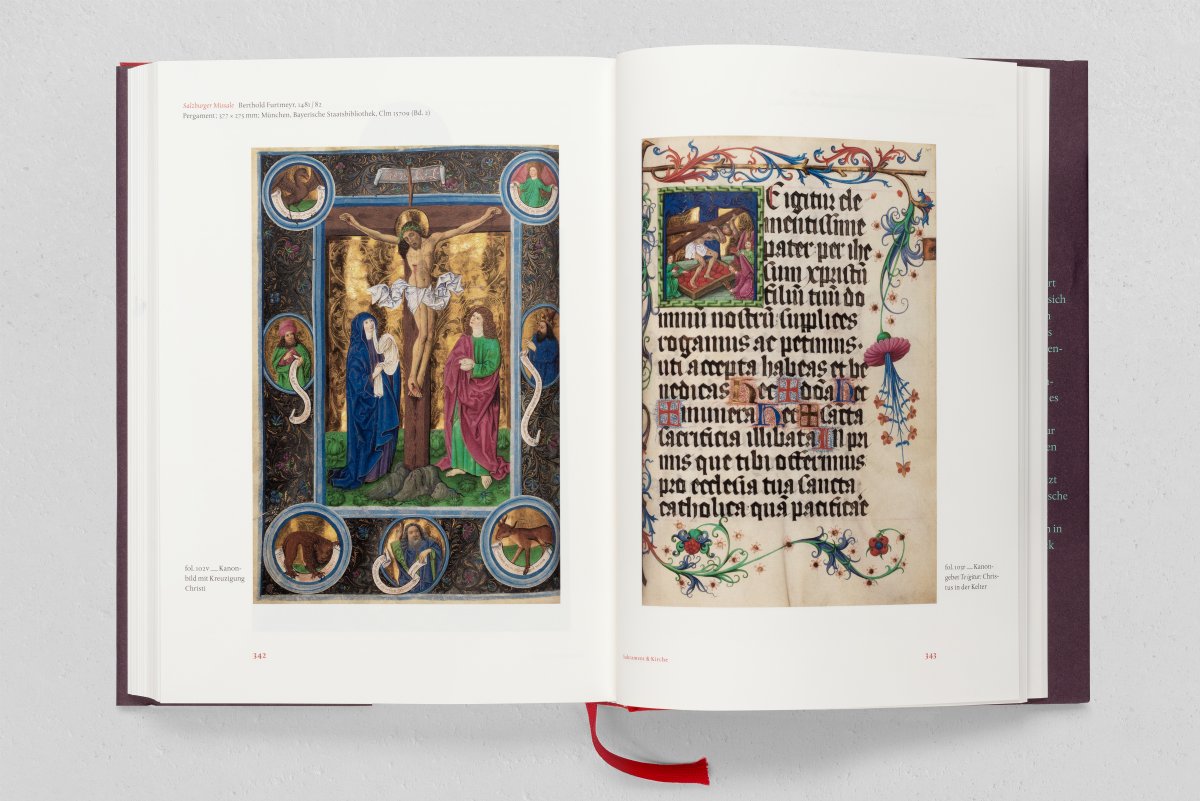 Salzburger Missale Berthold Furtmeyr, 1481/82
Pergament; 377 × 275 mm; München, Bayerische Staatsbibliothek, Clm 15709 (Bd. 2)
fol. 102v __ Kanon-
bild mit Kreuzigung
Christi
342
E igitur cle
mentissime
pater per ihe
sum xpristū
filiū tuū do
minū nostrū supplices
rogamus ac petimus.
uti accepta habeas et be
nedicas Hec ✠ dōa Hec
✠ munera Hec ✠ sācta
sacrificia illibata In pri
mis que tibi offerimus
pro ecclesia tua sancta
catholica quā pacificare
fol. 103r __ Kanon-
gebet Te igitur: Chris-
tus in der Kelter
Sakrament & Kirche
343
sich
es